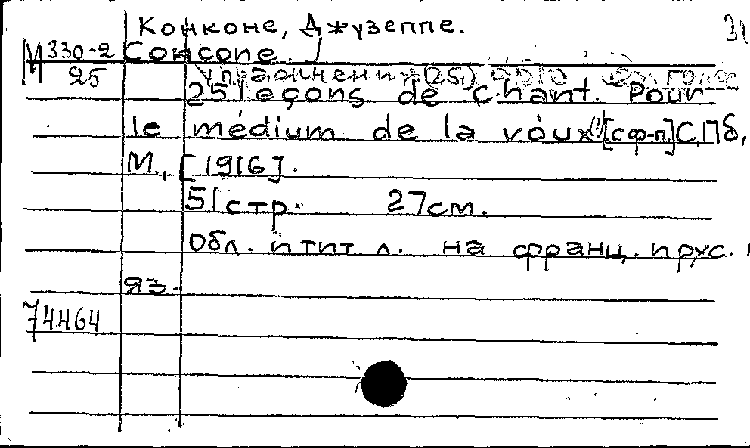 Конконе, Джузеппе. 31
М 330-2 Concone.
25 Упражнения (25)
25 leçons de chant. Pour
le médium de la voux [с ф-п.] С.Пб,
М., [1916].
51 стр. 27 см.
Обл. и тит. л. на франц. и рус.
яз.
74464